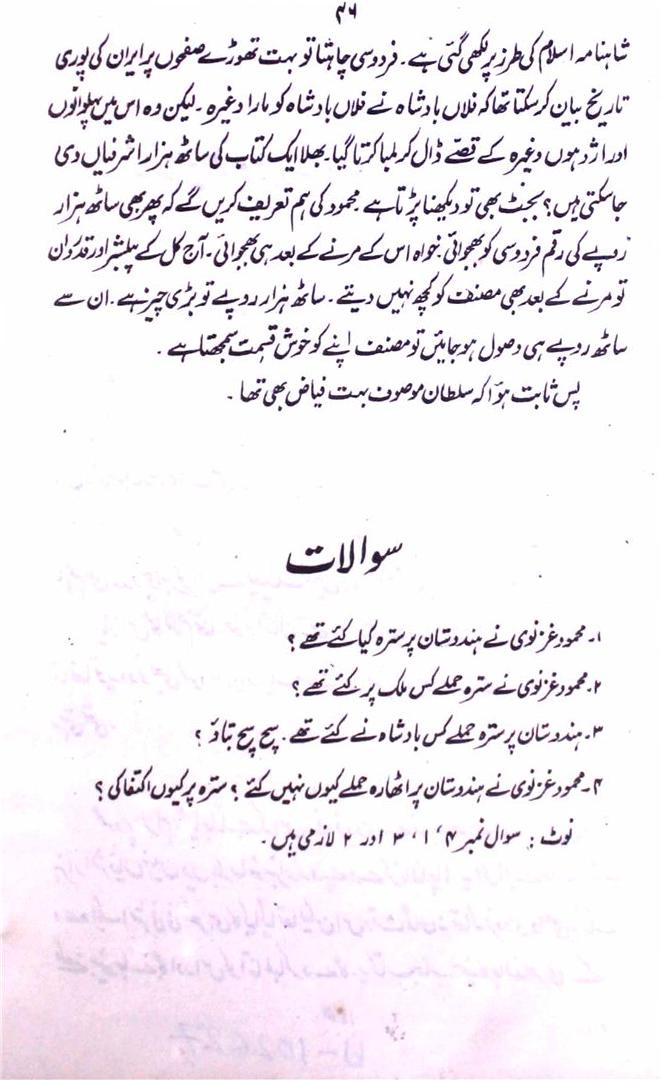 ۴۶
شاہنامہ اسلام کی طرز پر لکھی گئی ہے۔ فردوسی چاہتا تو بہت تھوڑے صفحوں پر ایران کی پوری
تاریخ بیان کر سکتا تھا کہ فلاں بادشاہ نے فلاں بادشاہ کو مارا وغیرہ۔ لیکن وہ اس میں پہلوانوں
اور اژدہوں وغیرہ کے قصّے ڈال کر لمبا کرتا گیا۔ بھلا ایک کتاب کی ساٹھ ہزار اشرفیاں دی
جا سکتی ہیں؟ بجٹ بھی تو دیکھنا پڑتا ہے محمود کی ہم تعریف کریں گے کہ پھر بھی ساٹھ ہزار
روپے کی رقم فردوسی کو بھجوائی۔ خواہ اس کے مرنے کے بعد ہی بھجوائی۔ آج کل کے پبلشر اور قدردان
تو مرنے کے بعد بھی مصنف کو کچھ نہیں دیتے۔ ساٹھ ہزار روپے تو بڑی چیز ہے۔ ان سے
ساٹھ روپے ہی وصول ہو جائیں تو مصنف اپنے کو خوش قسمت سمجھتا ہے۔
پس ثابت ہوٴا کہ سلطان موصوف بہت فیاض بھی تھا۔
سوالات
۱۔ محمود غزنوی نے ہندوستان پر سترہ کیا کئے تھے؟
۲۔ محمود غزنوی نے سترہ حملے کس ملک پر کئے تھے؟
۳۔ ہندوستان پر سترہ حملے کس بادشاہ نے کئے تھے۔ سچ سچ بتاؤ؟
۴۔ محمود غزنوی نے ہندوستان پر اٹھارہ حملے کیوں نہیں کئے؟ سترہ پر کیوں اکتفا کی؟
نوٹ: سوال نمبر ۴، ۱، ۳ اور ۲ لازمی ہیں۔